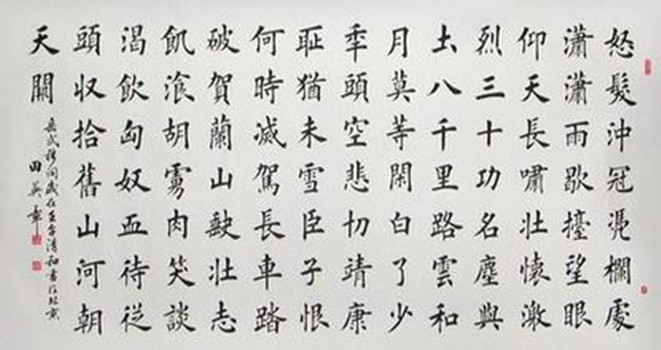 怒髮沖冠凴欄處
瀟瀟雨歇擡望眼
仰天長嘯壯懷激
烈三十功名塵與
圡八千里路雲和
月莫等閑白了少
秊頭空悲切靖康
耻猶未雪臣子恨
何時滅駕長車踏
破賀蘭山缺壯志
飢飡胡虜肉笑談
渴飲匈奴血待從
頭収拾舊山河朝
天闕
岳武穆詞歲在清和書於北京
田英章